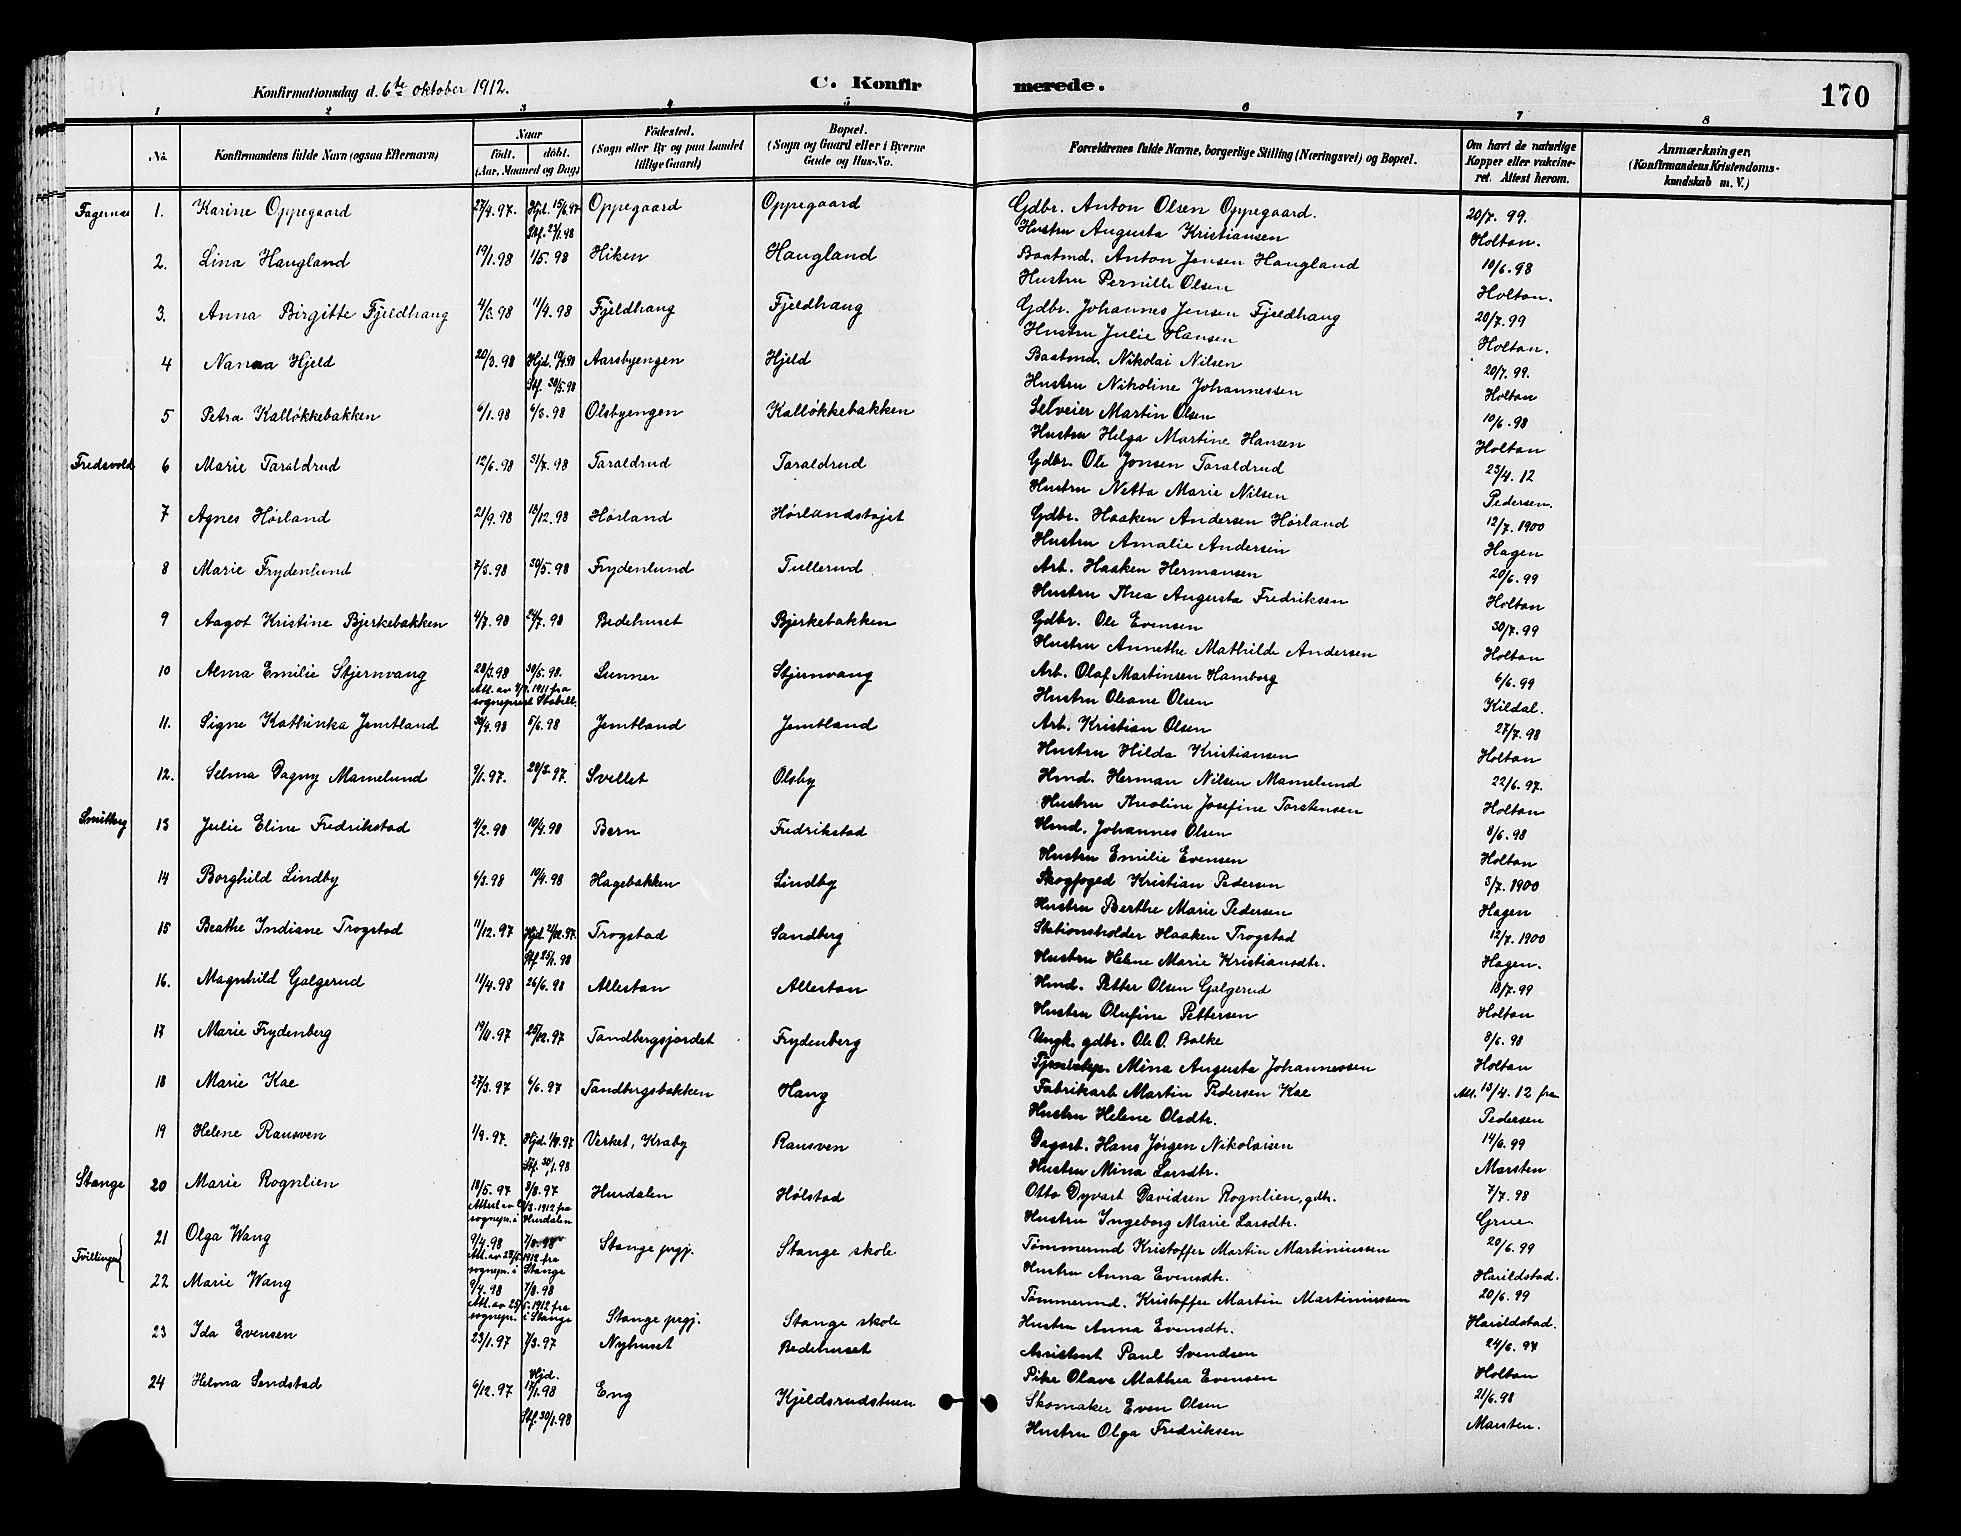 Konfirmationsdag d. 6te oktober 1912.
C. Konfirmerede.
170
1 2 3 4 5 6 7 8
No.
Konfirmandens fulde Navn (ogsaa Efternavn)
Naar
født. døbt.
(Aar, Maaned og Dag)
Fødested.
(Sogn eller By og paa Landet
tillige Gaard)
Bopæl.
(Sogn og Gaard eller i Byerne
Gade og Hus-No.
Forældrenes fulde Navne, borgerlige Stilling (Næringsvei) og Bopæl.
Om havt de naturlige
Kopper eller vakcine-
ret. Attest herom.
Anmærkninger
(Konfirmandens Kristendoms-
kundskab m. V.)
Fagernes 1. Karine Oppegaard 27/4.97. Hjd. 15/6.97 Oppegaard Oppegaard Gdbr. Anton Olsen Oppegaard. 20/7. 99.
Stf. 23/1.98 Hustru Augusta Kristiansen Holton.
2. Lina Haugland 19/1.98 1/5.98 Hiken Haugland Baatmd. Anton Jensen Haugland 10/6.98
Hustru Pernille Olsen Holton.
3. Anna Birgitte Fjeldhaug 4/3.98 11/4.98 Fjeldhaug Fjeldhaug Gdbr. Johannes Jensen Fjeldhaug 20/7.99
Hustru Julie Hansen Holton.
4 Nanna Hjeld 20/3.98 Hjd. Aarsbyengen Hjeld Baatmd. Nikolai Nilsen 20/7.99.
Stf. 30/5.98 Hustru Nikoline Johannessen Holton
5 Petra Kalløkkebakken 6/1.98 6/3.98 Olsbyengen Kalløkkebakken Selveier Martin Olsen 10/6.98
Hustru Helga Martine Hansen Holton
Fredsvold 6 Marie Taraldrud 12/6.98 31/7.98 Taraldrud Taraldrud Gdbr. Ole Jonsen Taraldrud 23/4.12
Hustru Netta Marie Nilsen Pedersen.
7 Agnes Hørland 21/9.98 13/12.98 Hørland Hørlandstajet Gdbr. Haaken Andersen Hørland 12/7.1900
Hustru Amalie Andersen Hagen
8 Marie Frydenlund 7/3.98 30/5.98 Frydenlund Tullerud Arb. Haaken Hermansen 20/6.99
Hustru Thea Augusta Fredriksen Holton
9 Aagot Kristine Bjerkebakken 4/7.98 24/7.98 Bedehuset Bjerkebakken Gdbr. Ole Evensen 30/7.99
Hustru Annethe Mathilde Andersen Holton
10 Alma Emilie Stjernvang 28/3.98 30/5.98. Lunner Stjernvang Arb. Olaf Martinsen Hamborg 6/6.99
1911 fra Hustru Oleane Olsen Kildal.
11. Signe Kathinka Jemtland 30/4.98 5/6.98 Jemtland Jemtland Arb. Kristian Olsen 27/7.98
Hustru Hilda Kristiansen Holton
12. Selma Dagny Mamelund 9/1.97. 28/3.97. Svellet Olsby Hmd. Herman Nilsen Mamelund 22/6.97.
Hustru Theoline Josefine Torstensen Holton
Smitberg 13 Julie Eline Fredrikstad 4/2.98 10/4.98 Bern Fredrikstad Hmd. Johannes Olsen 8/6.98
Hustru Emilie Evensen Holton
14 Borghild Lindby 6/3.98 10/4.98 Hagebakken Lindby Skogfoged Kristian Pedersen 3/7.1900
Hustru Berthe Marie Pedersen Hagen
15 Beathe Indiane Trogstad 11/12.97 Hjd. Trogstad Sandberg Stationsholder Haaken Trogstad 12/7.1900
Stf. 25/1.98 Hustru Helene Marie Kristiansdtr. Hagen.
16. Magnhild Galgerud 11/4.98 26/6.98 Allestan Allestan Hmd. Petter Olsen Galgerud 18/7.99
Hustru Olufine Pettersen Holton
17 Marie Frydenberg 19/4.97 25/12.97 Tandbergsjordet Frydenberg Ungk. gdbr. Ole O. Balke 8/6.98
Mina Augusta Johannessen Holton
18 Marie Kae 27/3.97 6/6.97 Tandbergsbakken Haug Fabrikarb Martin Pedersen Kae Att. 13/4.12 fra
Hustru Helene Olsdtr. Pedersen
19 Helene Ransven 1/9.97. Hjd. Verket, Kraby Ransven Dagarb. Hans Jørgen Nikolaisen 14/6.99
Stf. 30/1.98 Hustru Mina Larsdtr. Marsten
Stange 20 Marie Rognlien 18/5.97 8/8.97 Hurdalen Hølstad Otto Dyvart Davidsen Rognlien, gdbr. 7/7.98
Attest av 1912 fra
sognepr. i Hurdalen Hustru Ingeborg Marie Larsdtr. Grue.
Tvillinger 21 Olga Wang 9/4.98 7/8.98 Stange prgj. Stange skole Tømmermd Kristoffer Martin Martiniussen 20/6.99
Att. av 1912 fra
sognepr. i Stange Hustru Anna Evensdtr. Harildstad.
22 Marie Wang 9/4.98 7/8.98 Stange prgj. Stange skole Tømmermd. Kristoffer Martin Martiniussen 20/6.99
Att. av 25/5.1912 fra
sognepr. i Stange Hustru Anna Evensdtr. Harildstad.
23 Ida Evensen 23/1.97 7/3.97 Nyhuset Bedehuset Assistent Paul Svendsen 24/6.97
Pike Olave Mathea Evensen Holton
24 Helma Sendstad 6/12.97 Hjd. 17/1.98 Eng Kjeldsrudstuen Skomaker Even Olsen 21/6.98
Stf. 30/1.98 Hustru Olga Fredriksen Marsten.